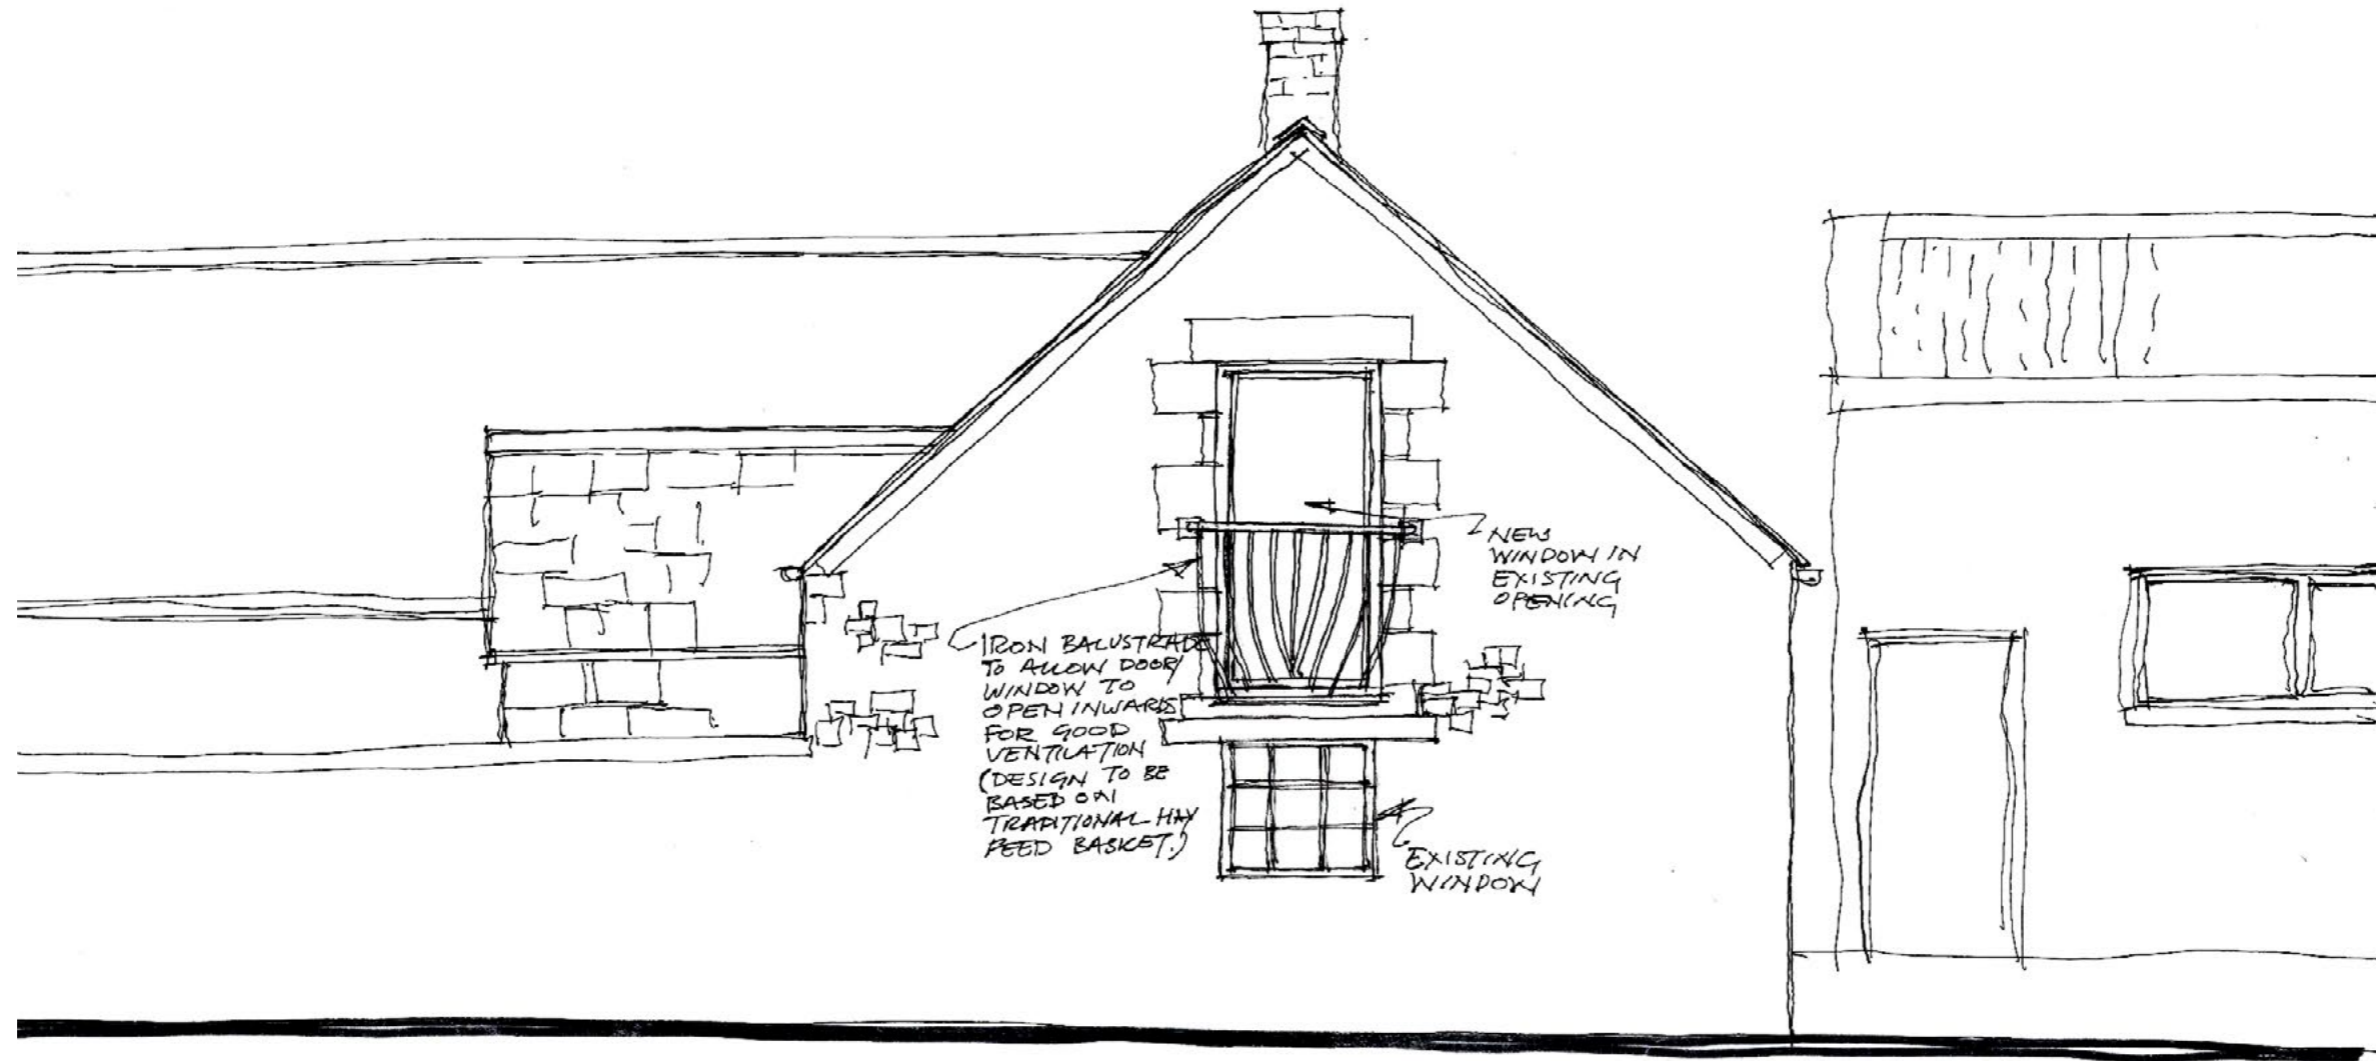 NEW
WINDOW IN
EXISTING
OPENING
IRON BALUSTRADE
TO ALLOW DOOR/
WINDOW TO
OPEN INWARDS
FOR GOOD
VENTILATION
(DESIGN TO BE
BASED ON
TRADITIONAL HAY
FEED BASKET.)
EXISTING
WINDOW